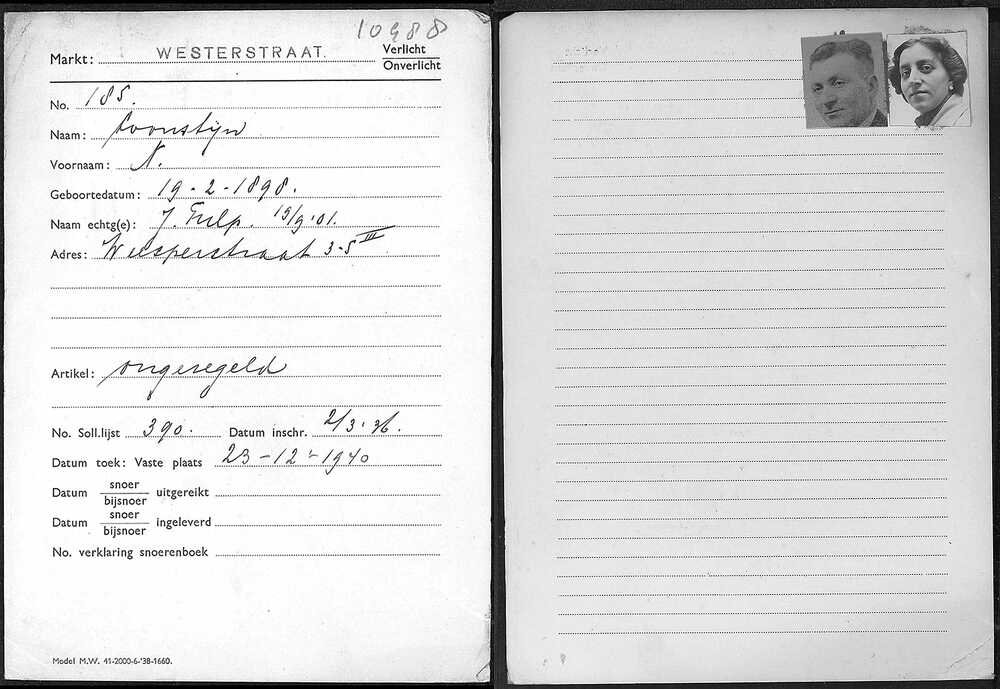 10988
Markt: WESTERSTRAAT. Verlicht
Onverlicht
No. 185.
Naam: Loonstijn
Voornaam: N.
Geboortedatum: 19-2-1898.
Naam echtg(e): J. Tulp. 15/9'01.
Adres: Weesperstraat 3-5 III
Artikel: ongeregeld
No. Soll.lijst 390. Datum inschr. 2/3'36.
Datum toek: Vaste plaats 23-12-1940
Datum snoer
bijsnoer uitgereikt
Datum snoer
bijsnoer ingeleverd
No. verklaring snoerenboek
Model M.W. 41-2000-6-'38-1660.